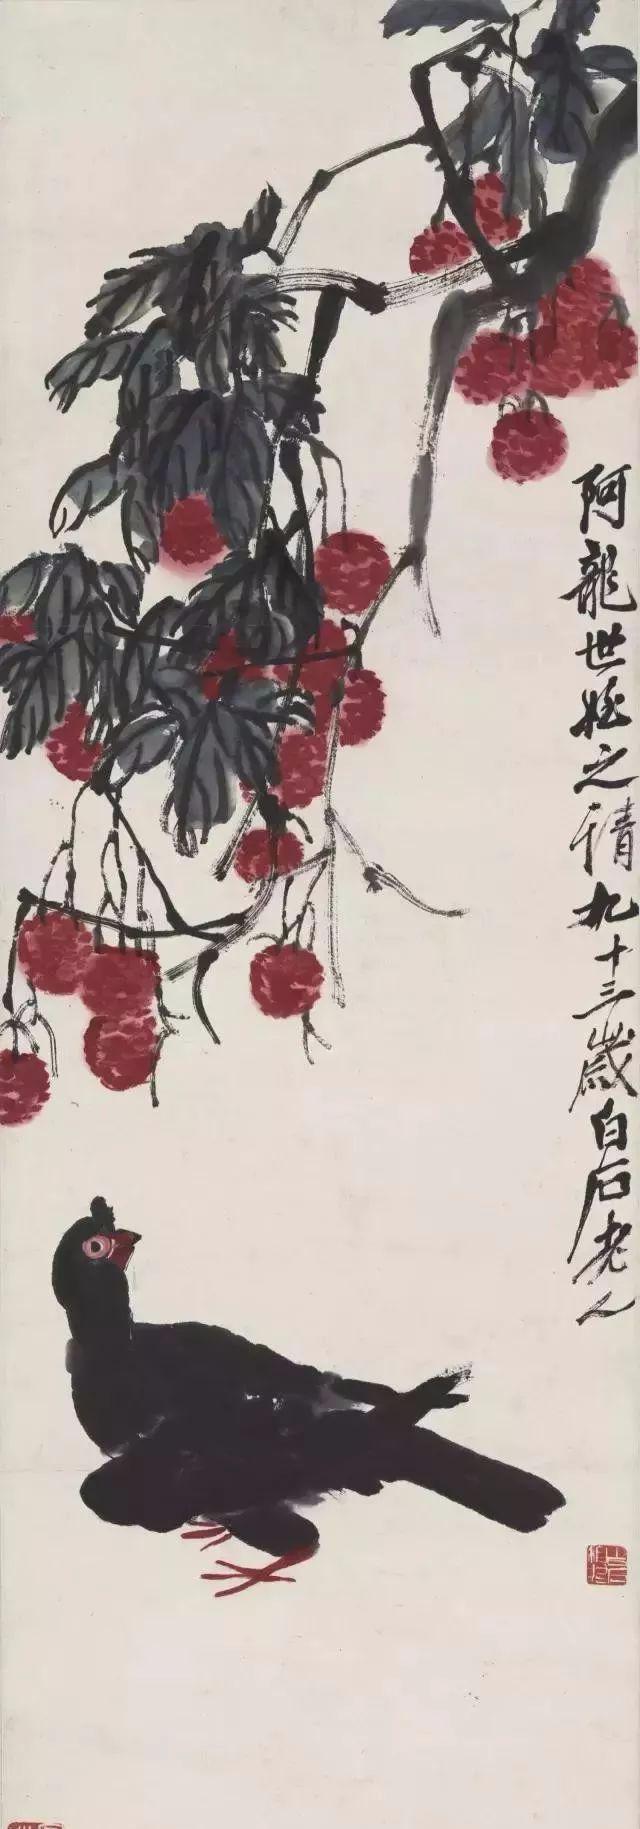 阿龍世姪之請九十三歲白石老人